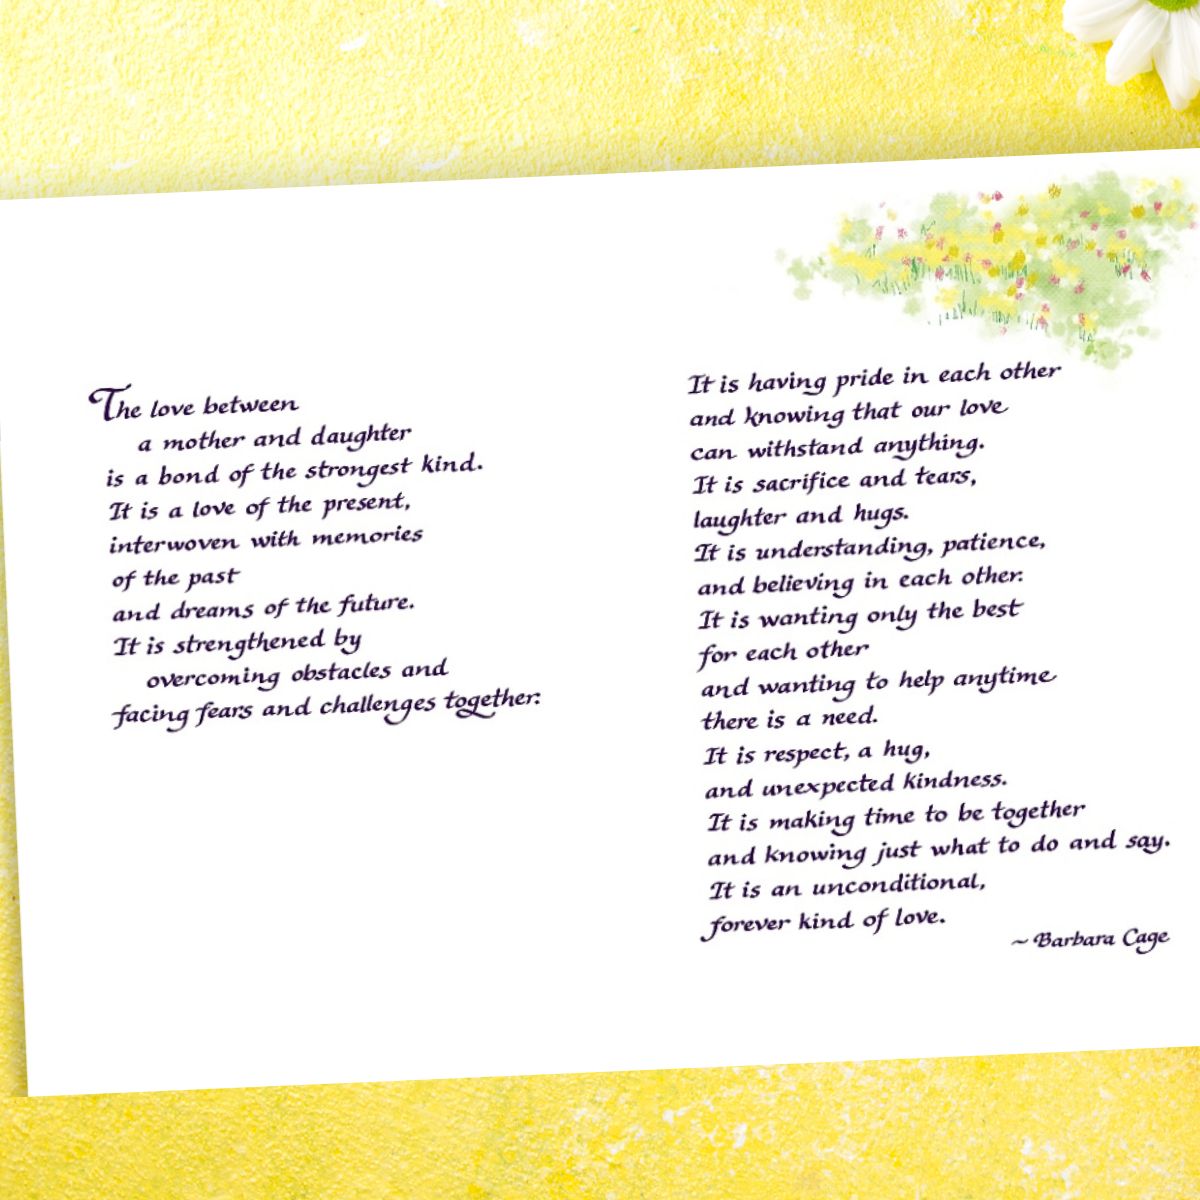 The love between
a mother and daughter
is a bond of the strongest kind.
It is a love of the present,
interwoven with memories
of the past
and dreams of the future.
It is strengthened by
overcoming obstacles and
facing fears and challenges together.
It is having pride in each other
and knowing that our love
can withstand anything.
It is sacrifice and tears,
laughter and hugs.
It is understanding, patience,
and believing in each other.
It is wanting only the best
for each other
and wanting to help anytime
there is a need.
It is respect, a hug,
and unexpected kindness.
It is making time to be together
and knowing just what to do and say.
It is an unconditional,
forever kind of love.
~ Barbara Cage